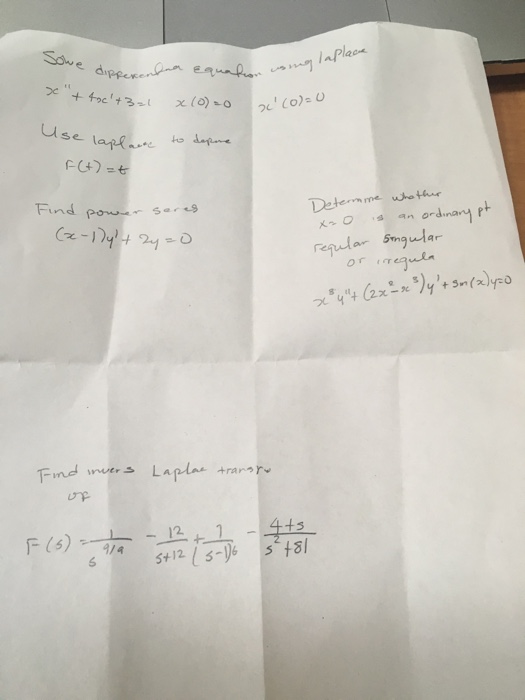 Solve differential equation using laplace
x"+ 4x'+3=1 x(0)=0 x'(0)=0
Use laplace to define
F(t)=t
Find power series
(x-1)y'+ 2y=0
Determine whether
x=0 is an ordinary pt
regular singular
or irregula
x³y"+(2x²-x³)y'+sin(x)y=0
Find invers Laplae transfr
of
F(s) = 1/s^9/9 - 12/s+12 + 7/(s-1)^6 - 4+s/s²+81